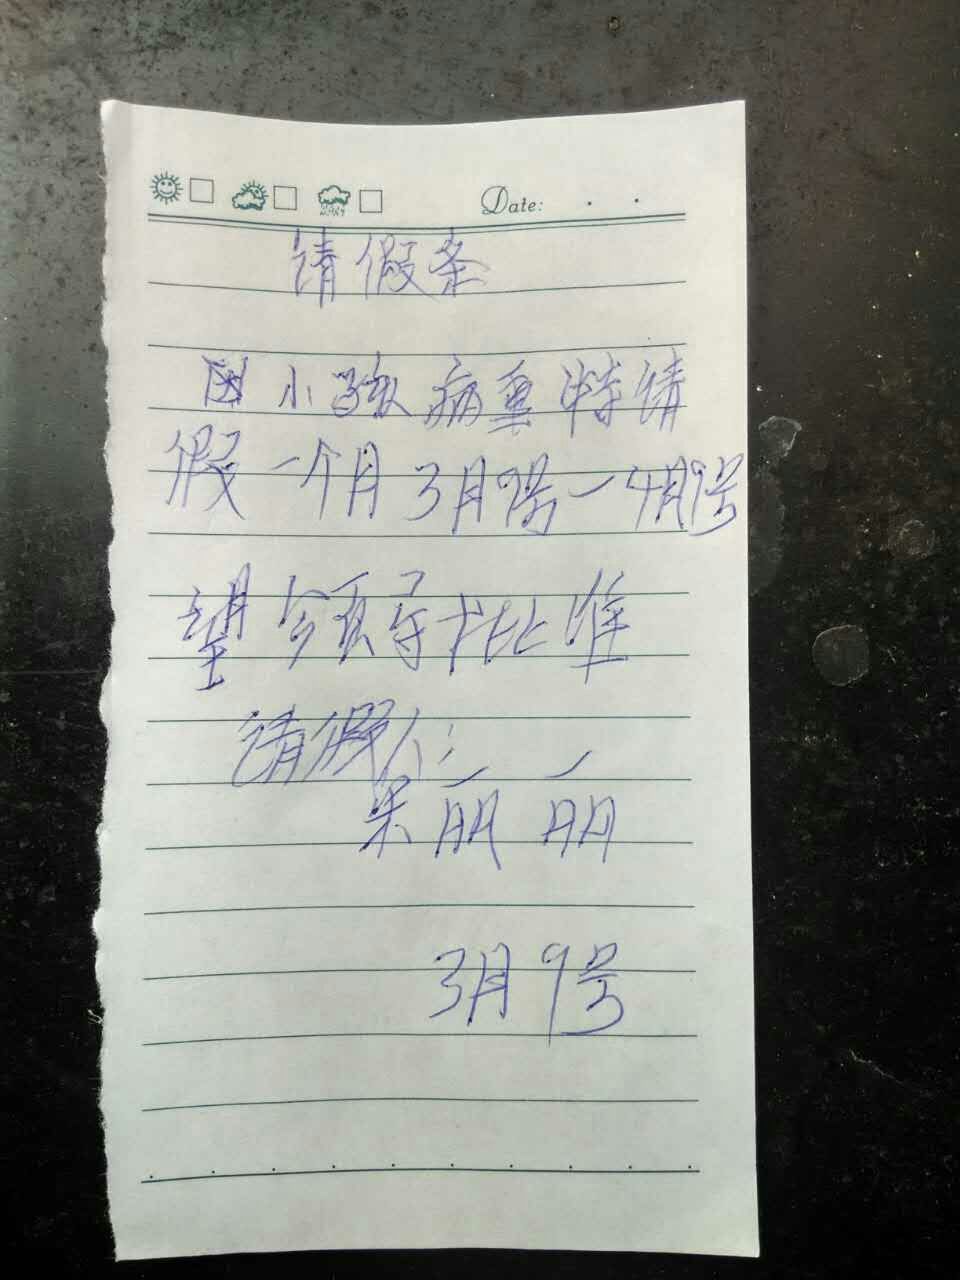 Date:
请假条
因小孩病重特请
假一个月3月9号一4月9号
望领导批准
请假人:
朱丽丽
3月9号